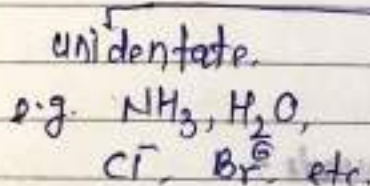 unidentate.
e.g. NH₃, H₂O,
Cl⁻, Br⊖ etc.